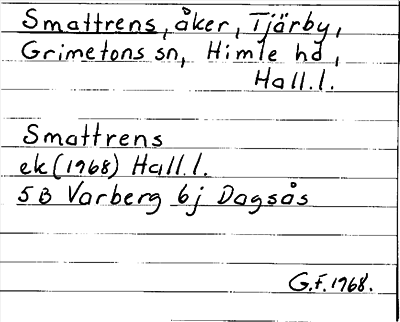 Smattrens, åker, Tjärby,
Grimetons sn, Himle hd,
Hall.l.
Smattrens
ek (1968) Hall.l.
5B Varberg 6j Dagsås
G.F. 1968.